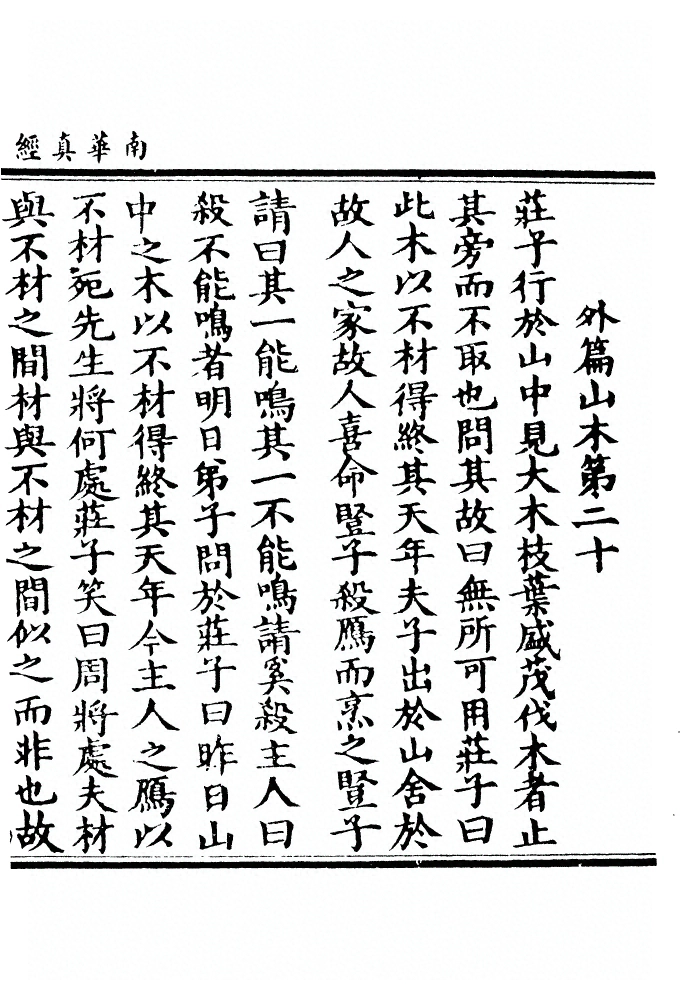 南華真經
外篇山木第二十
莊子行於山中見大木枝葉盛茂伐木者止
其旁而不取也問其故曰無所可用莊子曰
此木以不材得終其天年夫子出於山舍於
故人之家故人喜命豎子殺鴈而烹之豎子
請曰其一能鳴其一不能鳴請奚殺主人曰
殺不能鳴者明日弟子問於莊子曰昨日山
中之木以不材得終其天年今主人之鴈以
不材死先生將何處莊子笑曰周將處夫材
與不材之間材與不材之間似之而非也故